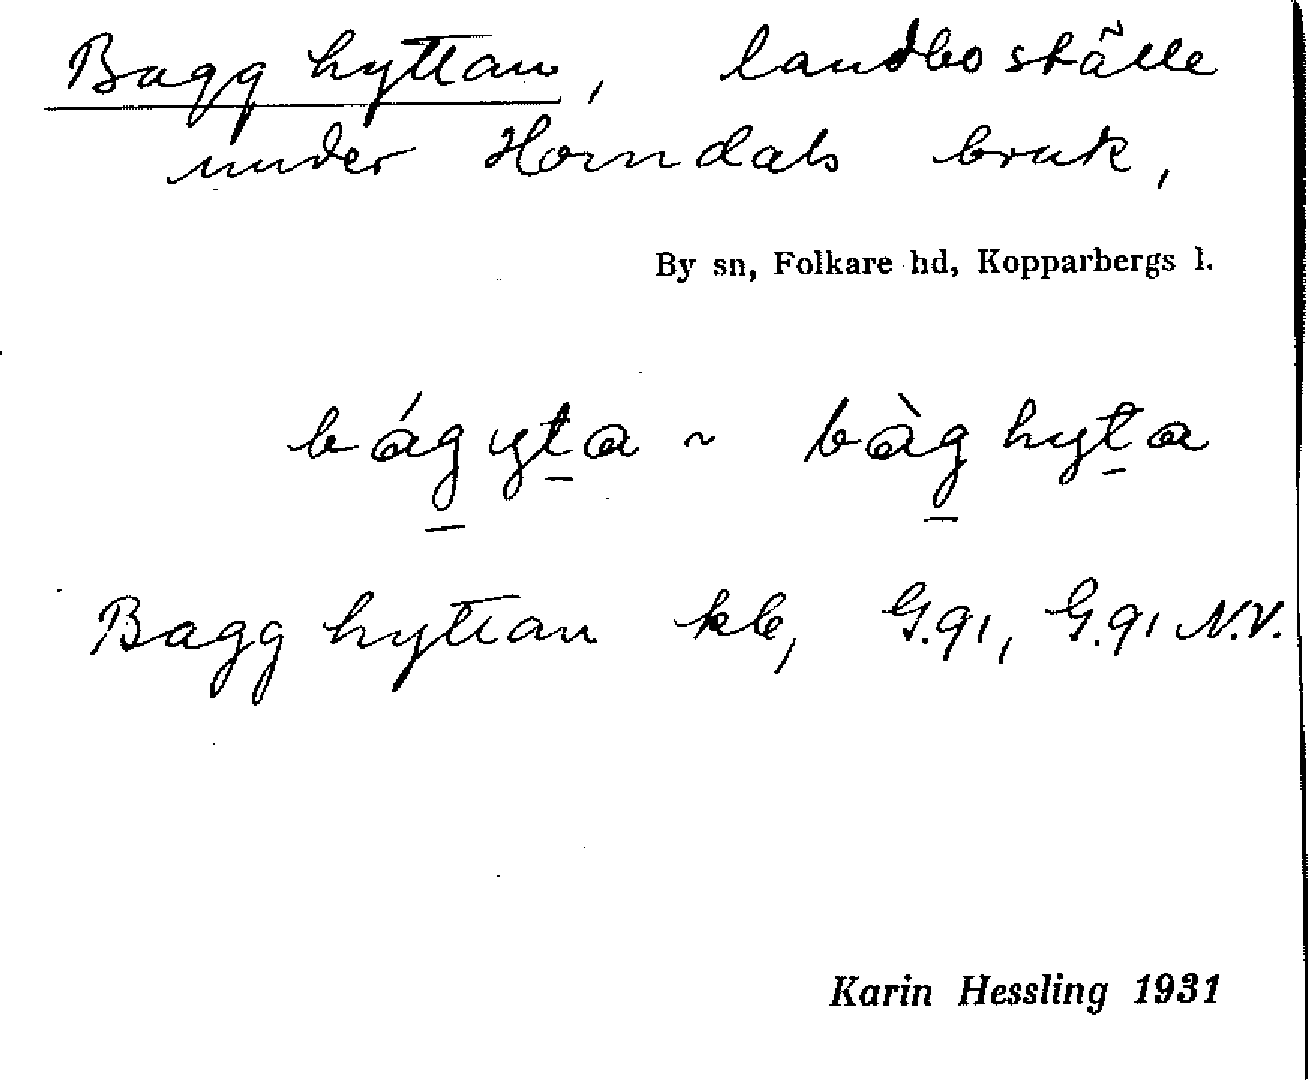 Bagghyttan, landboställe
under Horndals bruk,
By sn, Folkare hd, Kopparbergs l.
bág̲yt̲a ~ bàg̲hyt̲a
Bagghyttan kb, G.91, G.91 N.V.
Karin Hessling 1931